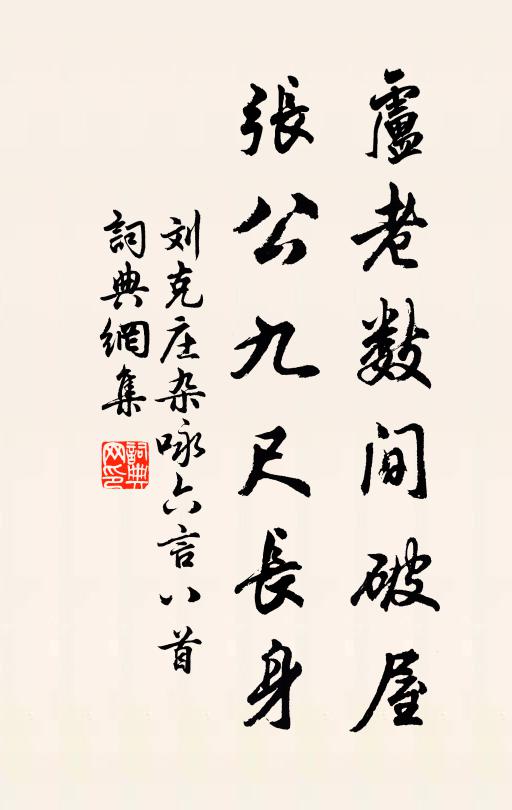 盧老数间破屋
張公九尺長身
刘克庄杂咏六言八首
詞典網集
詞典网印